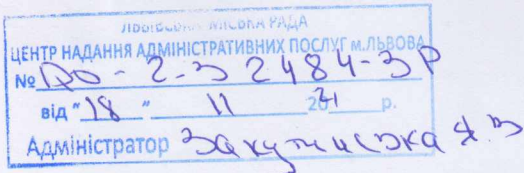 ЛЬВІВСЬКА МІСЬКА РАДА
ЦЕНТР НАДАННЯ АДМІНІСТРАТИВНИХ ПОСЛУГ м.ЛЬВОВА
№ ДО-2-32484-ЗР
від "18" 11 2021 р.
Адміністратор